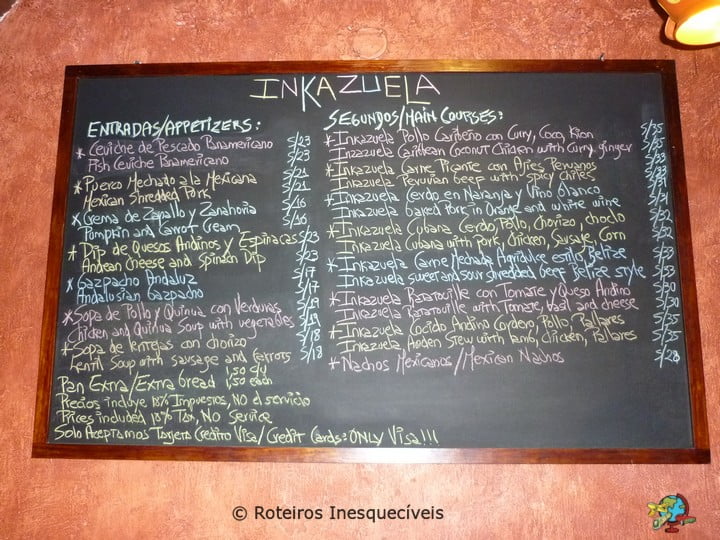 INKAZUELA
ENTRADAS/APPETIZERS:
* Ceviche de Pescado Panamericano S/23
Fish Ceviche Panamericano S/23
* Puerco Mechado a la Mexicana S/21
Mexican Shredded Pork S/21
* Crema de Zapallo y Zanahoria S/16
Pumpkin and Carrot Cream S/16
* Dip de Quesos Andinos y Espinacas S/23
Andean Cheese and Spinach Dip S/23
* Gazpacho Andaluz S/17
Andalusian Gazpacho S/17
* Sopa de Pollo y Quinua con Verduras S/19
Chicken and Quinua Soup with vegetables S/19
* Sopa de lentejas con chorizo S/18
Lentil Soup with sausage and carrots S/18
Pan Extra/Extra bread 1,50 c/u
1,50 each
Precios incluye 18% Impuestos, NO el servicio
Prices included 18% Tax, NO Service
Solo Aceptamos Tarjeta Credito Visa/Credit Cards: ONLY Visa!!!
SEGUNDOS/MAIN COURSES:
* Inkazuela Pollo Caribeño con Curry, Coco, Kion S/35
Inkazuela Caribean Coconut Chicken with Curry, ginger S/35
* Inkazuela Carne Picante con Ajies Peruanos S/33
Inkazuela Peruvian beef with spicy chiles S/33
* Inkazuela Cerdo en Naranja y Vino blanco S/31
Inkazuela baked Pork in Orange and white wine S/31
* Inkazuela Cubana Cerdo, Pollo, Chorizo, choclo S/32
Inkazuela Cubana with pork, Chicken, Sausage, Corn S/32
* Inkazuela Carne Mechada Agridulce estilo Belize S/33
Inkazuela sweet and sour shredded beef Belize style S/33
* Inkazuela Ratatouille con Tomate y Queso Andino S/30
Inkazuela Ratatouille with Tomate, basil and cheese S/30
* Inkazuela Cocido Andino Cordero, Pollo, Pallares S/35
Inkazuela Andean Stew with lamb, chicken, Pallares S/35
* Nachos Mexicanos/Mexican Nachos S/28
© Roteiros Inesquecíveis